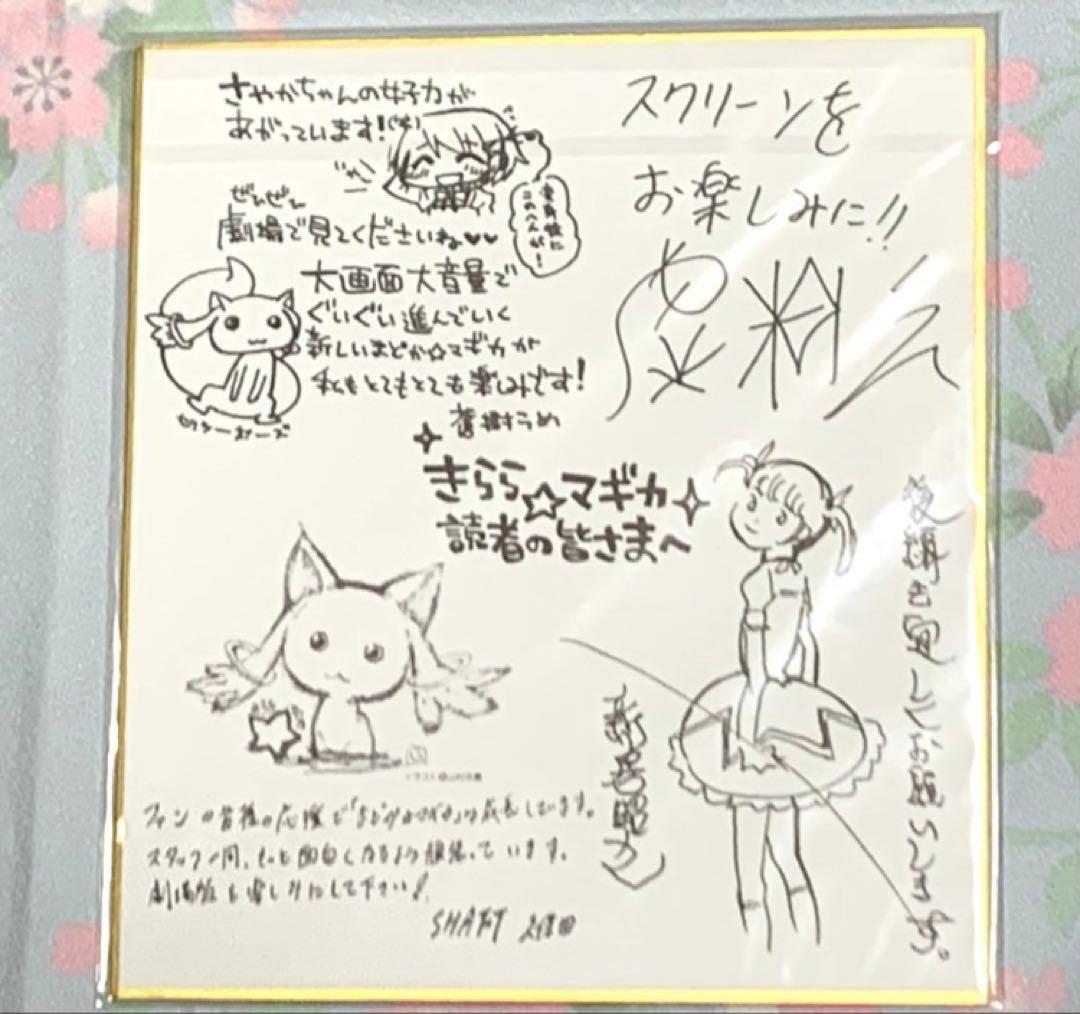 さやかちゃんの女子力が
あがっています!
ぜひぜひ
劇場で見てくださいね♥♥
大画面大音量で
ぐいぐい進んでいく
新しいまどか☆マギカが
私もとてもとても楽しみです!
蒼樹うめ
スクリーンを
お楽しみに!!
きらら☆マギカ
読者の皆さまへ
後編も宜しくお願いします。
新房昭之
ファンの皆様の応援で「まどかマギカ」は成長しています。
スタッフ一同、もっと面白くなるよう頑張っています。
劇場版も楽しみにして下さい!
SHAFT